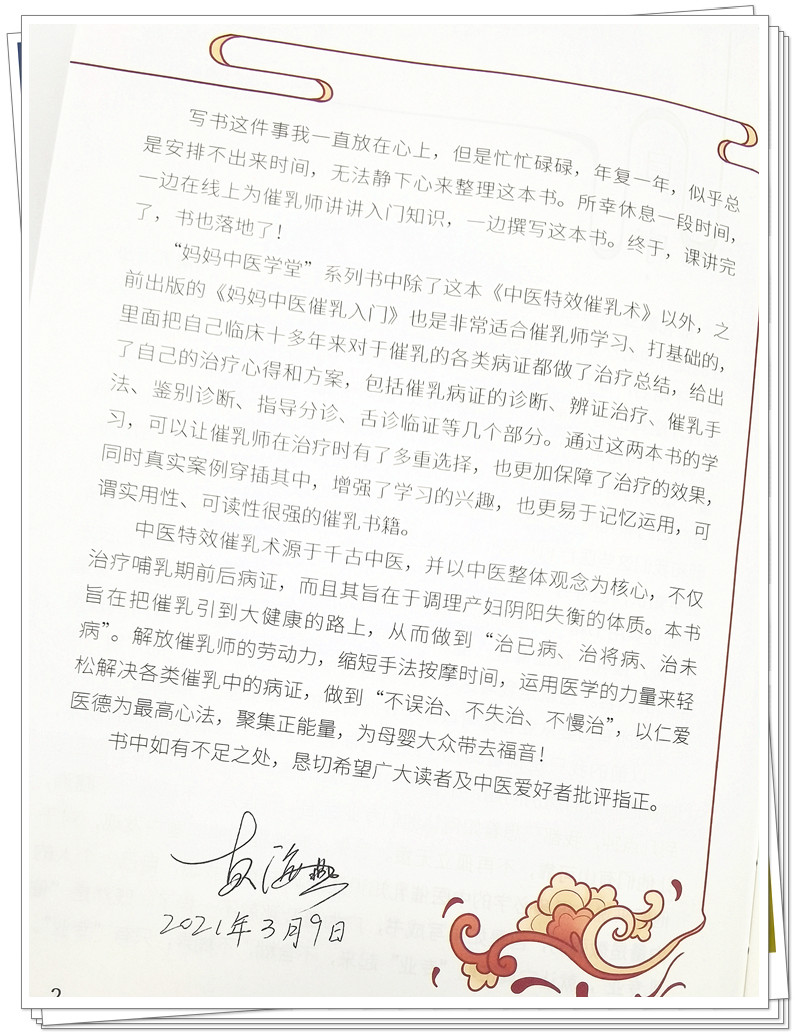 写书这件事我一直放在心上，但是忙忙碌碌，年复一年，似乎总
是安排不出来时间，无法静下心来整理这本书。所幸休息一段时间，
一边在线上为催乳师讲讲入门知识，一边撰写这本书。终于，课讲完
了，书也落地了！
“妈妈中医学堂”系列书中除了这本《中医特效催乳术》以外，之
前出版的《妈妈中医催乳入门》也是非常适合催乳师学习、打基础的，
里面把自己临床十多年来对于催乳的各类病证都做了治疗总结，给出
了自己的治疗心得和方案，包括催乳病证的诊断、辨证治疗、催乳手
法、鉴别诊断、指导分诊、舌诊临证等几个部分。通过这两本书的学
习，可以让催乳师在治疗时有了多重选择，也更加保障了治疗的效果，
同时真实案例穿插其中，增强了学习的兴趣，也更易于记忆运用，可
谓实用性、可读性很强的催乳书籍。
中医特效催乳术源于千古中医，并以中医整体观念为核心，不仅
治疗哺乳期前后病证，而且其旨在于调理产妇阴阳失衡的体质。本书
旨在把催乳引到大健康的路上，从而做到“治已病、治将病、治未
病”。解放催乳师的劳动力，缩短手法按摩时间，运用医学的力量来轻
松解决各类催乳中的病证，做到“不误治、不失治、不慢治”，以仁爱
医德为最高心法，聚集正能量，为母婴大众带去福音！
书中如有不足之处，恳切希望广大读者及中医爱好者批评指正。
海燕
2021年3月9日
2